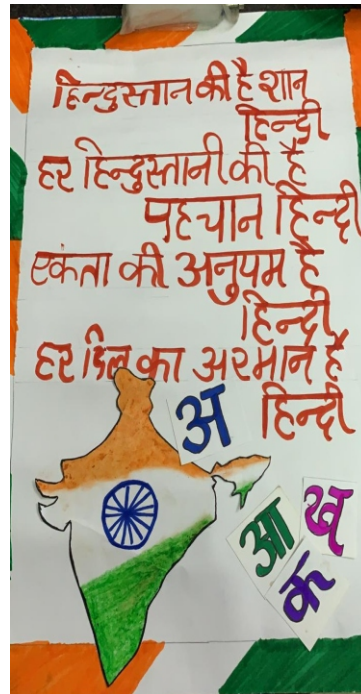 हिन्दुस्तान की है शान
हिन्दी
हर हिन्दुस्तानी की है
पहचान हिन्दी
एकता की अनुपम है
हिन्दी
हर दिल का अरमान है
हिन्दी
अ
आ ख
क